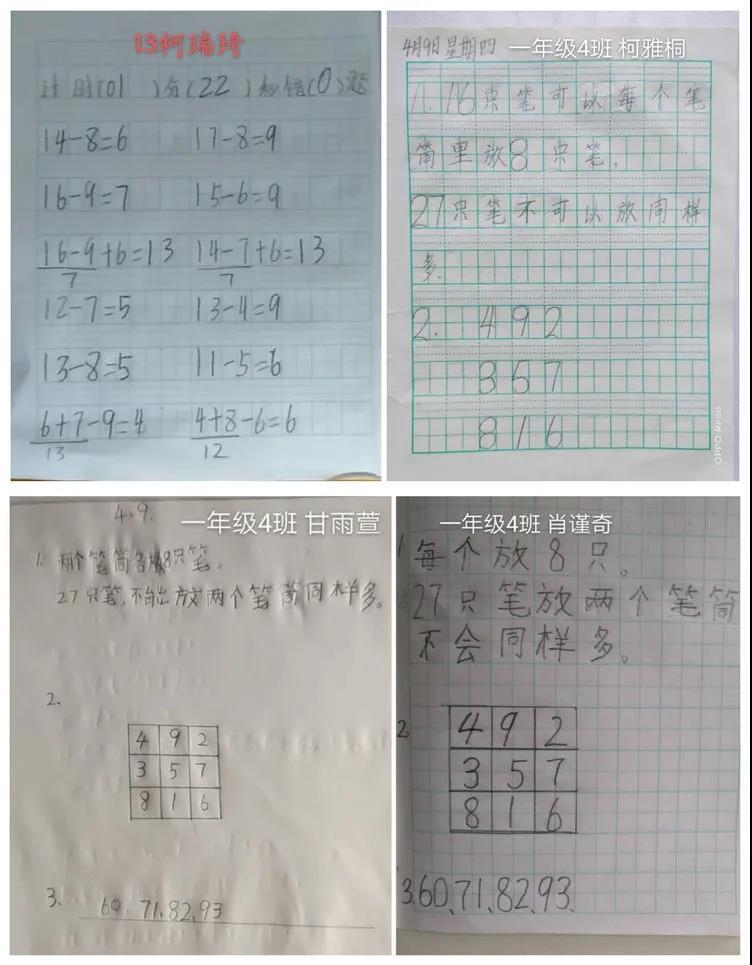 13柯瑞琦
计时(01)分(22)秒错(0)题
14-8=6 17-8=9
16-9=7 15-6=9
16-9+6=13 14-7+6=13
7 7
12-7=5 13-4=9
13-8=5 11-5=6
6+7-9=4 4+8-6=6
13 12
4月9日星期四 一年级4班 柯雅桐
1. 16只笔可以每个笔
筒里放8只笔。
27只笔不可以放同样
多.
2. 4 9 2
3 5 7
8 1 6
OPPO Reno
4.9. 一年级4班 甘雨萱
1. 两个笔筒各放8只笔。
27只笔,不能放两个笔筒同样多。
2.
4 9 2
3 5 7
8 1 6
3、 60、71、82、93
一年级4班 肖谨奇
1 每个放8只。
27只笔放两个笔筒
不会同样多。
2
4 9 2
3 5 7
8 1 6
3.60、71、82、93